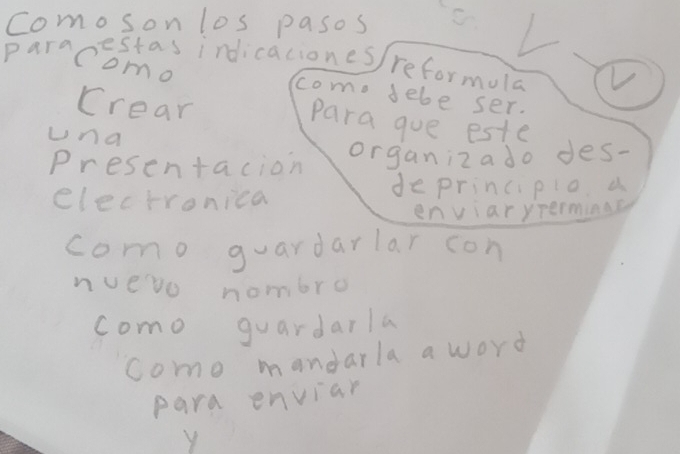 Como son los pasos
para estas indicaciones
Como
Crear
una
Presentación
electronica
reformula
como debe ser.
Para que este
organizado des-
de principio a
enviar y terminar
como guardarlar con
nuevo nombro
como guardarla
como mandarla a word
para enviar
y